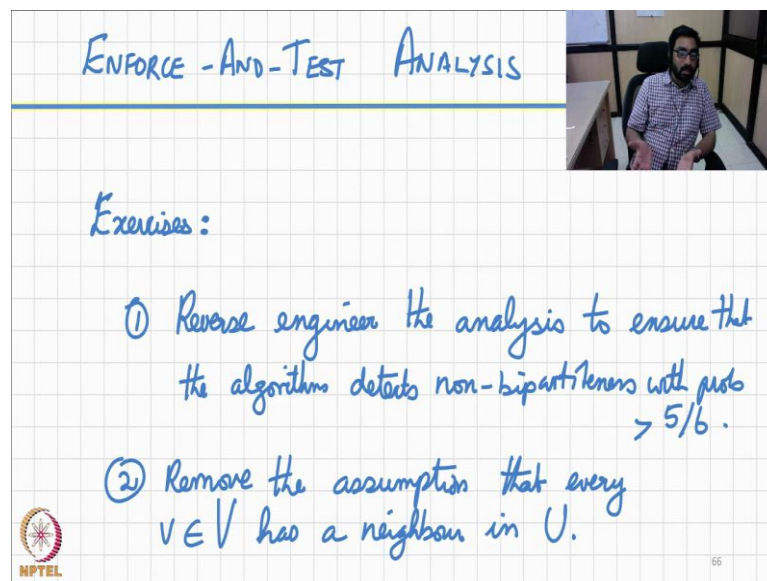 ENFORCE-AND-TEST ANALYSIS
Exercises:
① Reverse engineer the analysis to ensure that
the algorithm detects non-bipartiteness with prob
> 5/6.
② Remove the assumption that every
v ∈ V has a neighbour in U.
NPTEL
66